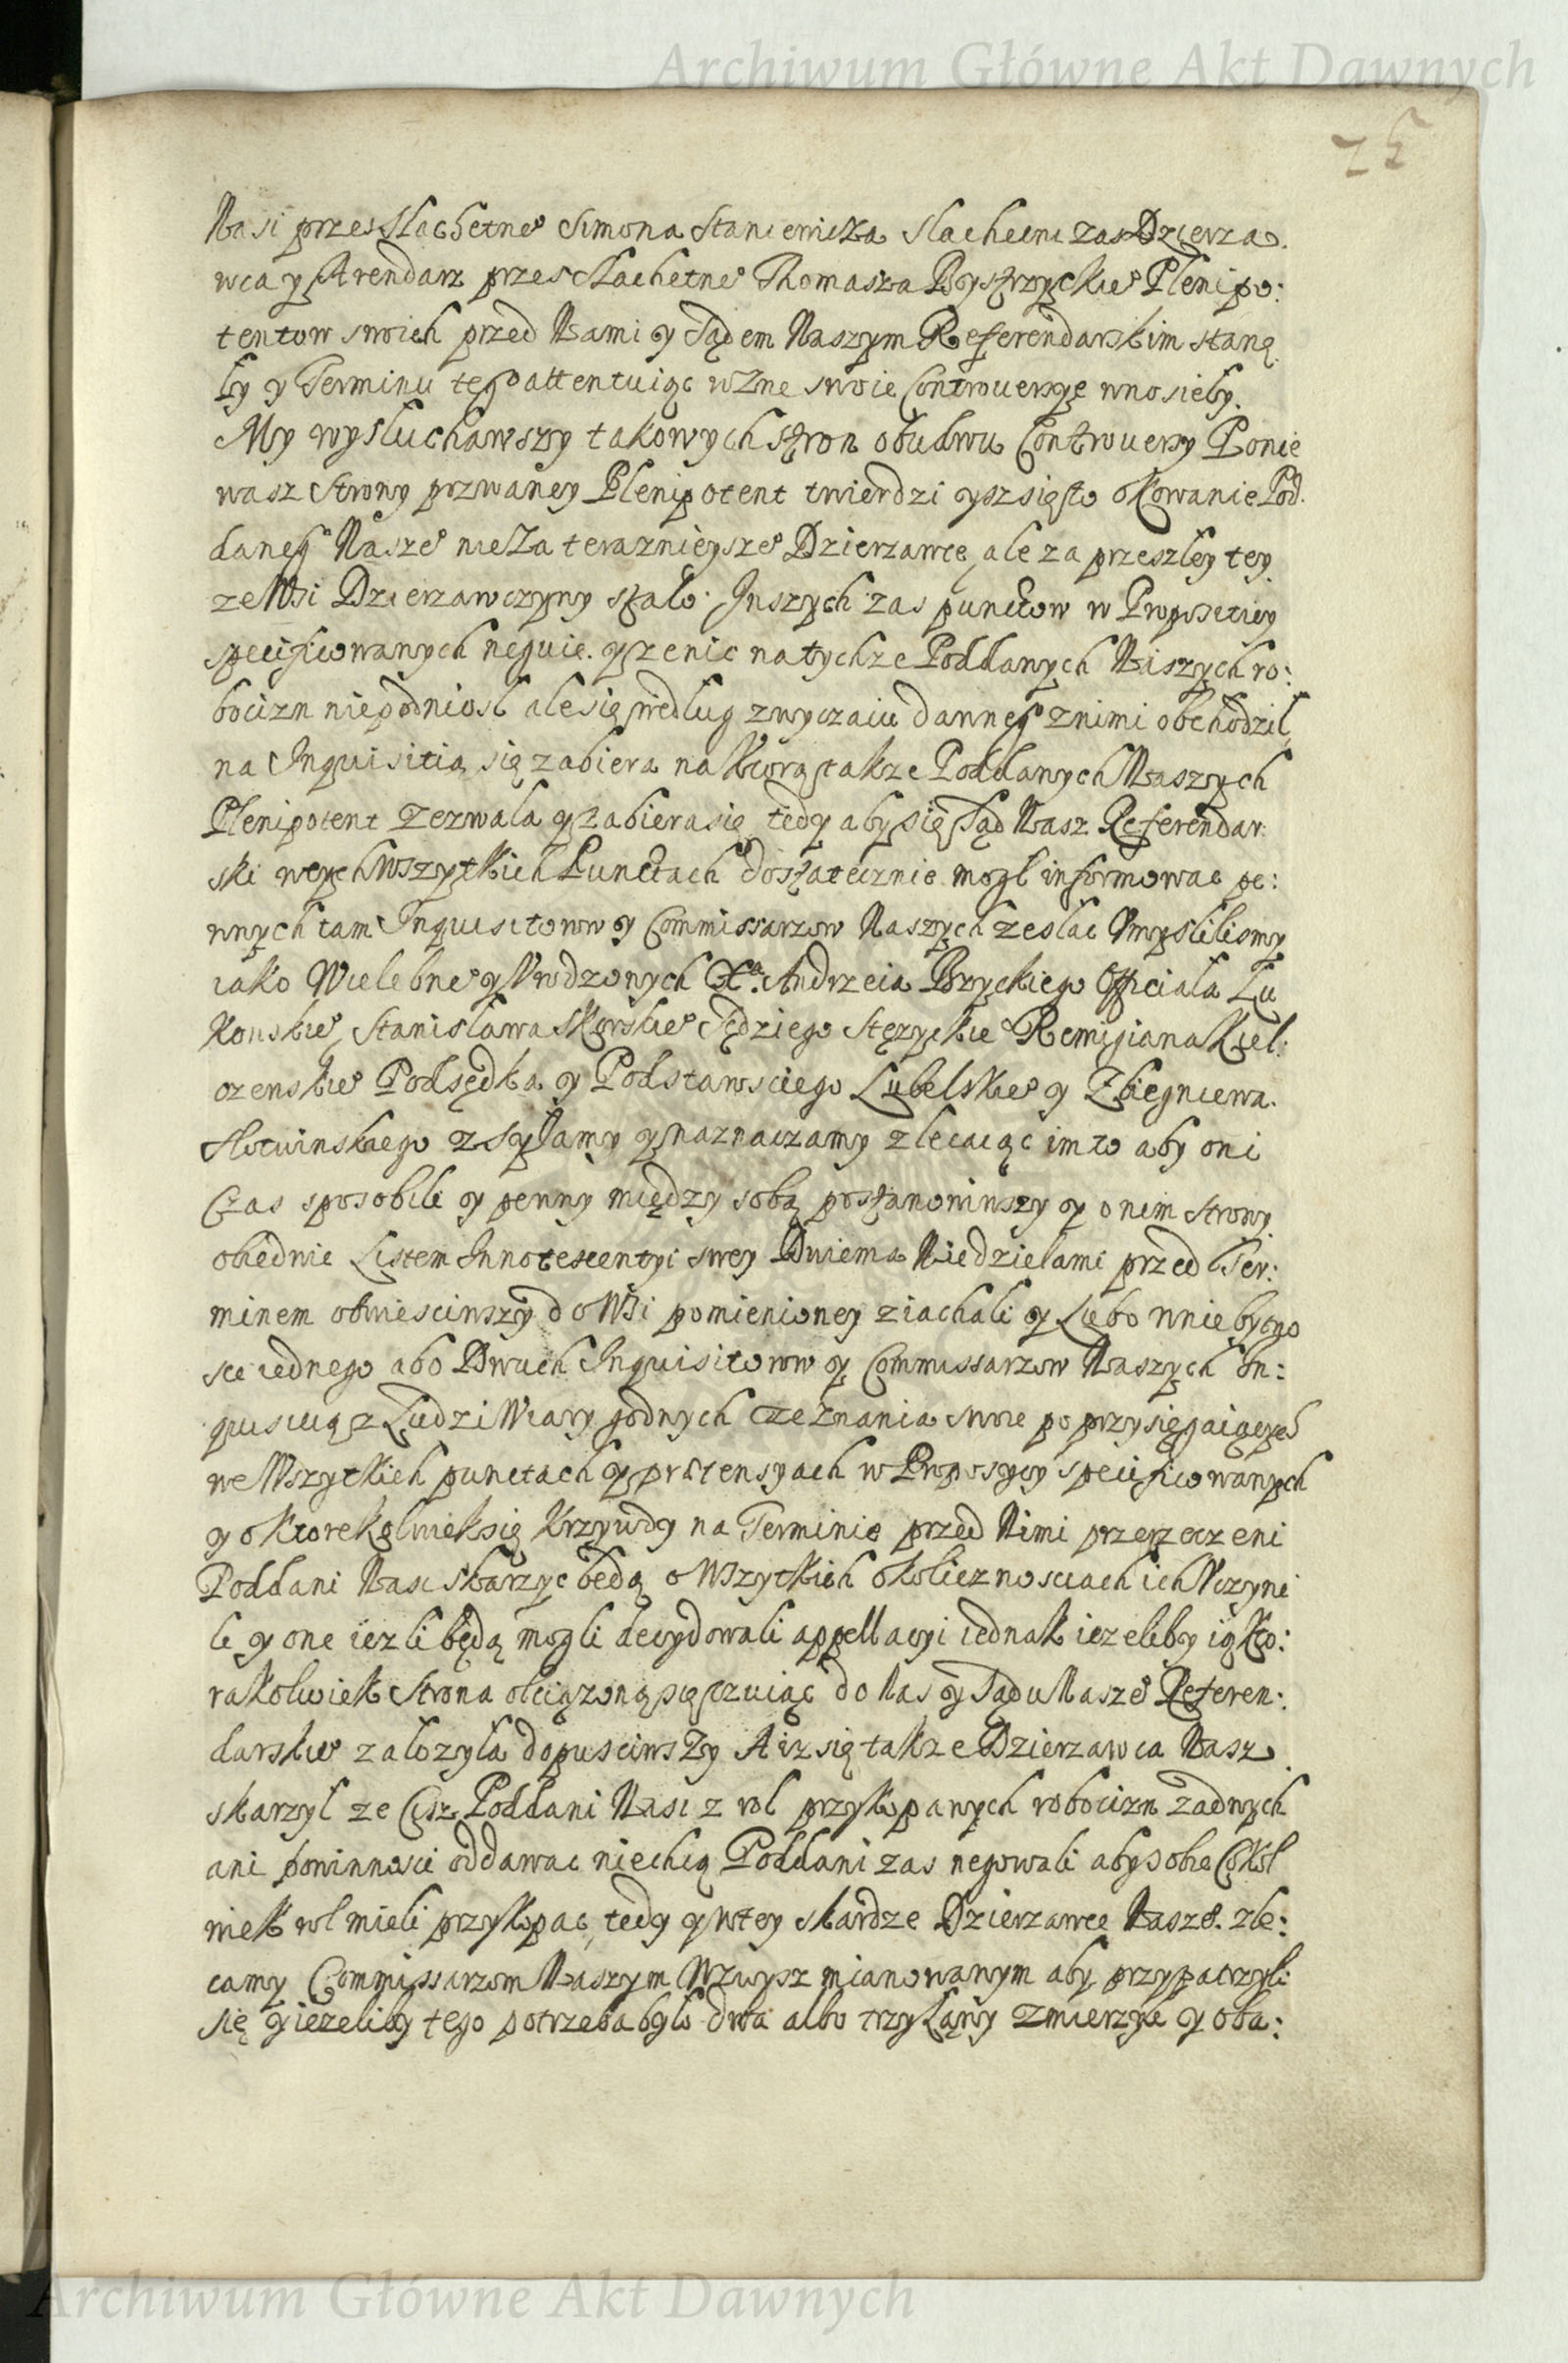 Archiwum Główne Akt Dawnych
25
Nasi przes Slachetne° Simona Staniewicza Slachetni zas Dzierza.
wca y Arendarz przes Slachetne° Thomasza Bystrzyckie° Plenipo:
tentow swoich przed Nami y Sądem Naszym Referendarskim staną.
ły y Terminu teg° attentuiąc rozne swoie Controuersye wnosieły.
My wysluchawszy takowych stron obudwu Controuersy Ponie
wasz Strony pozwaney Plenipotent twierdzi ysz się to okowanie Pod.
daneg° Nasze° nie za terazniejsze° Dzierzawce, ale za przeszley tey
ze Wsi Dzierzawczyny stalo. Inszych zas punctow w Propositiey
specificowanych neguie. y ze nic na tychze Poddanych Naszych ro:
bocizn niepodniosl ale się według zwyczaiu dawneg° z nimi obchodzil
na Inquisitią się zabiera na ktorą takze Poddanych Naszych
Plenipotent zezwala y zabiera się, tedy aby się Sąd Nasz Referendar.
ski w tych wszytkich Punctach dostatecznie mogl informowac pe:
wnych tam Inquisitorow y Commissarzow Naszych zeslac Vmyslilismy
iako Wielebne° y Vrodzonych Xa. Andrzeia Brzyckiego Officiala Łu
konskie°, Stanisława Skorskie° Sędziego Stęzyckie° Remigiana Kiel:
czenskie° Podsędka y Podstarosciego Lubelskie° y Zbiegniewa
Slotwinskiego zsyłamy y naznaczamy zlecaiąc im to aby oni
Czas sposobili y pewny między sobą postanowiwszy y o nim strony
obiedwie Listem Innotescentyi swey Dwiema Niedzielami przed Ter:
minem obwiesciwszy do Wsi pomienioney ziachali y Lubo w niebytno
sci iednego abo Dwuch Inquisitorow y Commissarzow Naszych In:
quisicią z Ludzi Wiary godnych zeznania swoie poprzysięgaiących
we Wszytkich punctach y prætensyach w Proposycy specificowanych
y o ktorekolwiek się Krzywdy na Terminie przed Nimi przerzeczeni
Poddani Nasi skarzyc będą o Wszytkich okolicznosciach ich Vczyni
li y one iezli będą mogli decydowali appellacyi iednak iezeliby ią kto:
rakolwiek Strona obciązoną się czuiąc do Nas y Sądu Nasze° Referen:
darskie° zalozyla dopusciwszy A iz się takze Dzierzawca Nasz
skarzył ze Cisz Poddani Nasi z rol przykopanych robocizn zadnych
ani powinnosci oddawac niechcą Poddani zas negowali aby sobie Cokol
wiek rol mieli przykopac, tedy y w tey skardze Dzierzawce Nasze°. zle:
camy Commissarzom Naszym Wzwysz mianowanym aby przypatrzyli
się y iezeliby tego potrzeba było dwa albo trzy Łany zmierzyli y oba:
Archiwum Główne Akt Dawnych